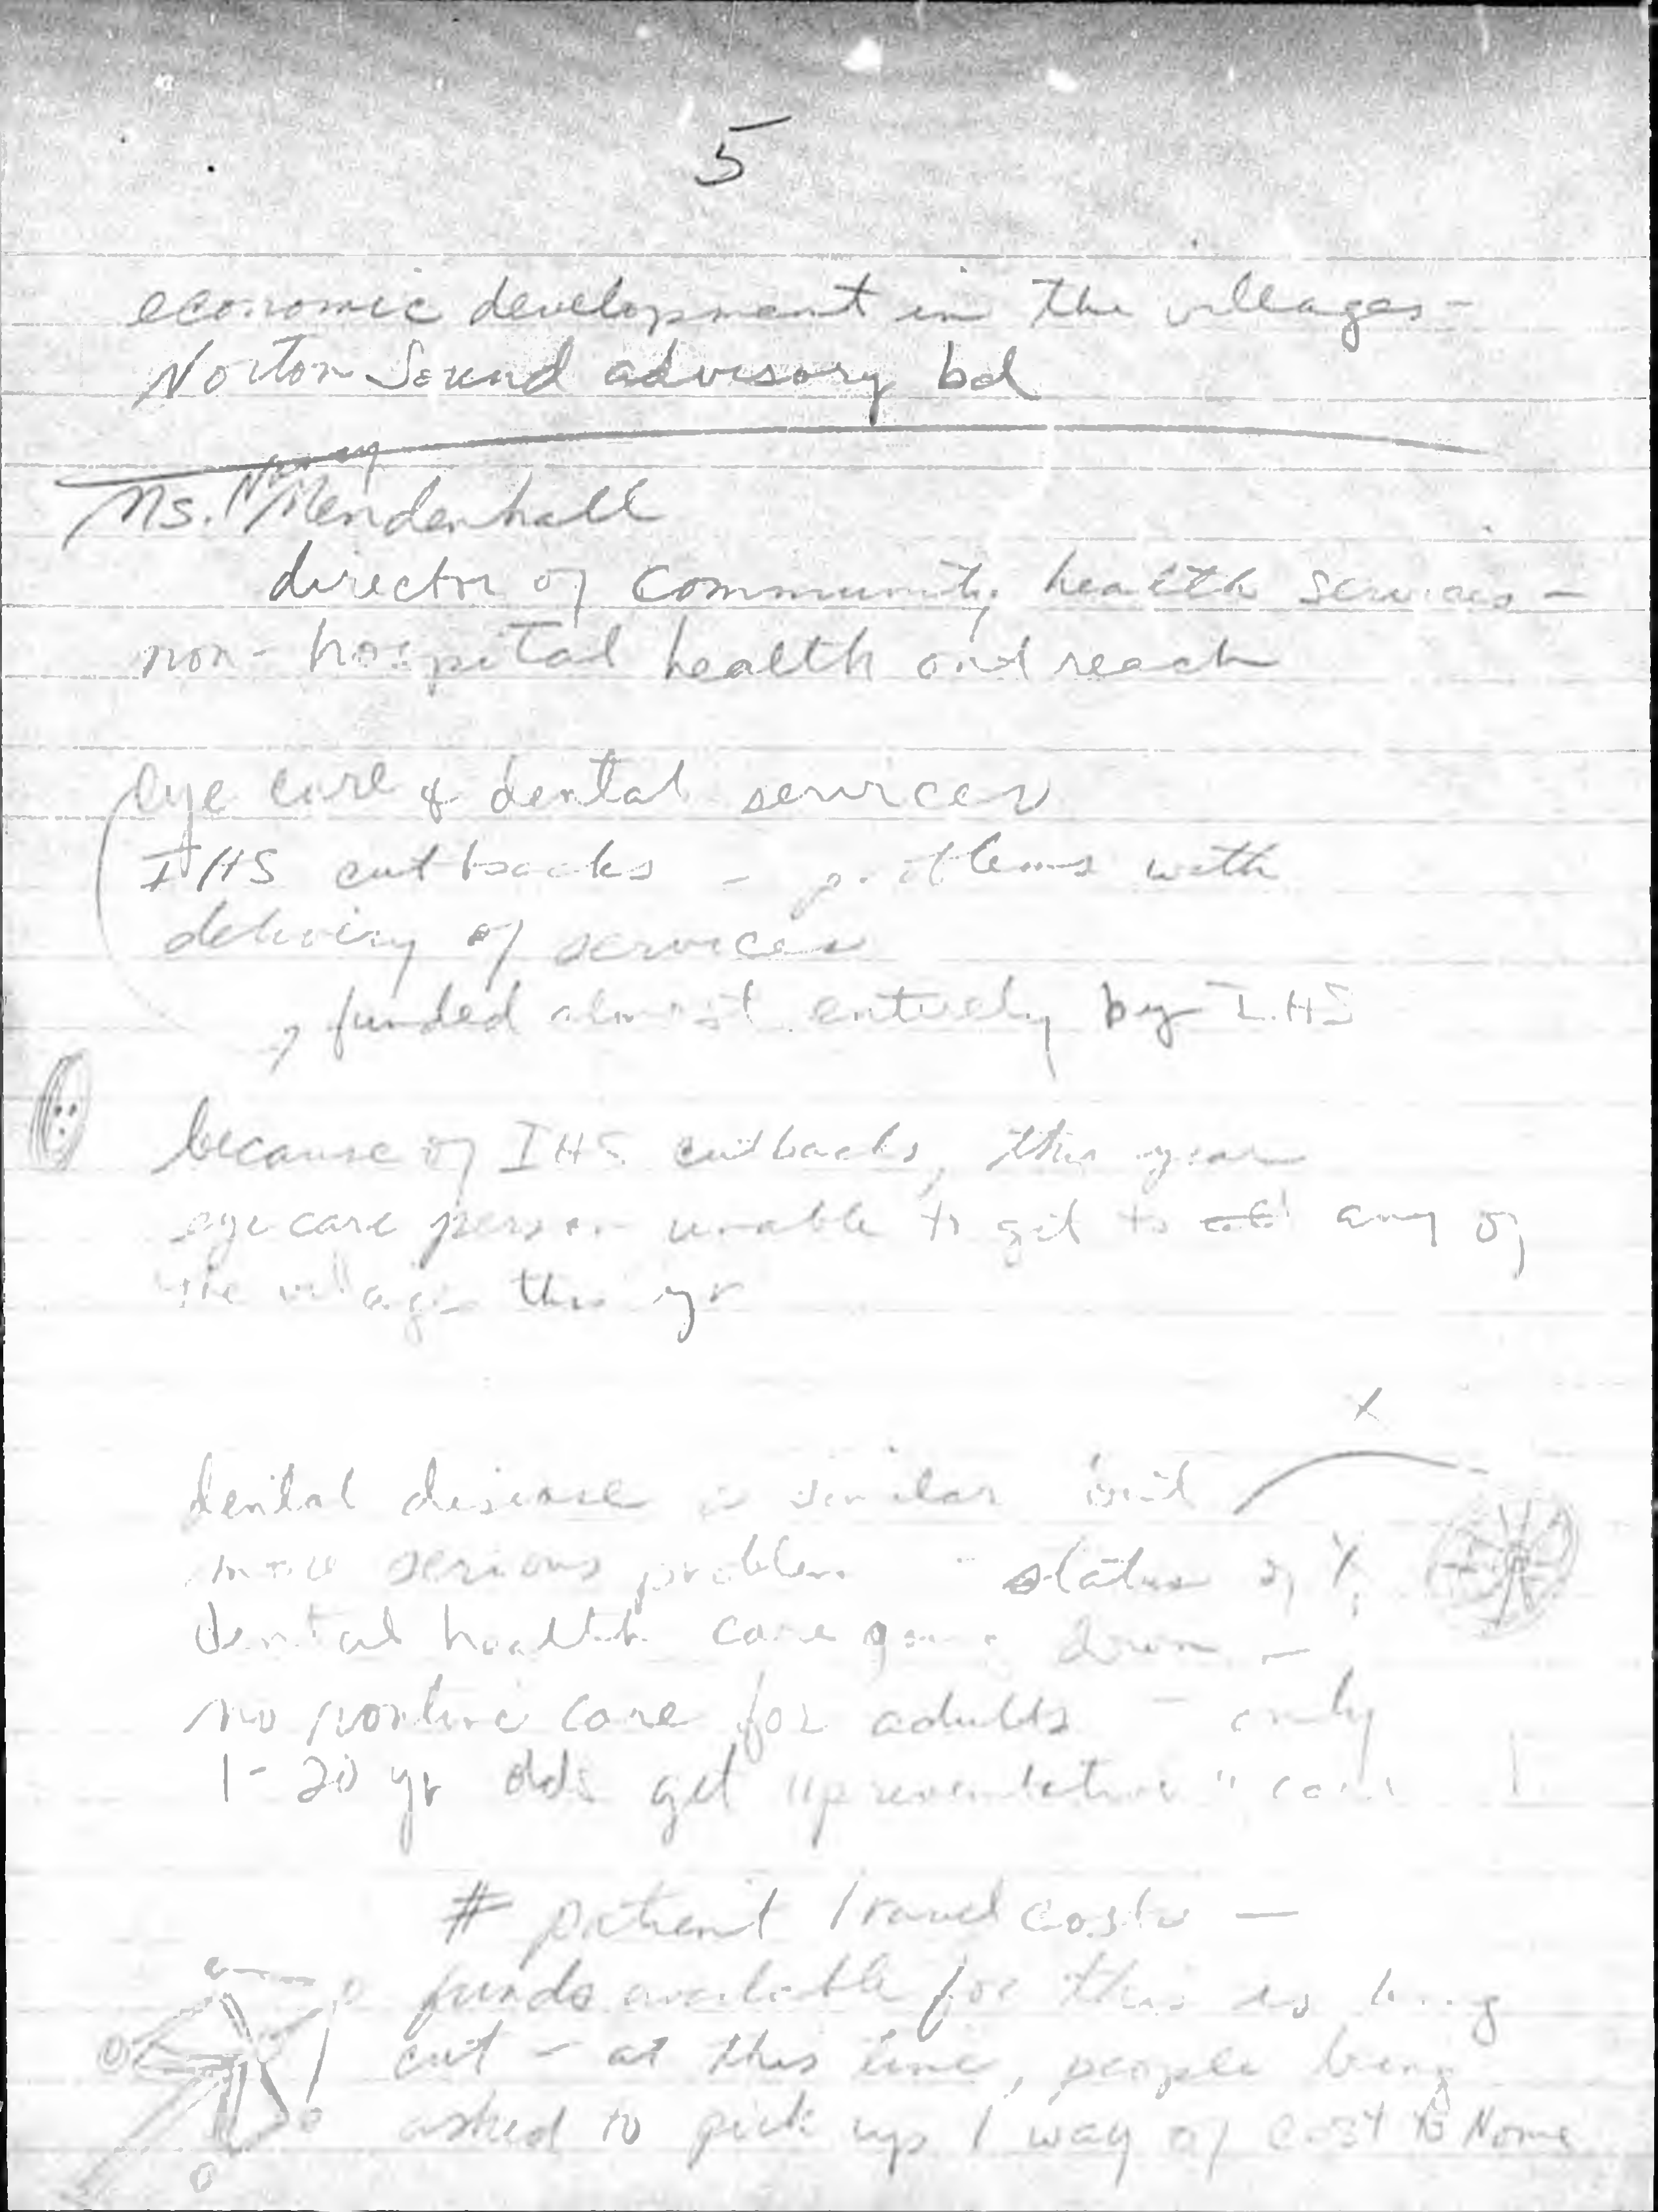 5
economic development in the villages -
Norton Sound advisory bd
Nancy
Ms. Mendenhall
director of community health services -
non-hospital health outreach
eye care & dental services
IHS cutbacks - problems with
delivery of services
funded almost entirely by IHS
because of IHS cutbacks, this year
eye care person unable to get to any of
the villages this yr
x
dental disease is similar but
more serious problem - status of
dental health care going down -
no routine care for adults - only
1-20 yr olds get "preventative" care
# patient travel costs -
funds available for this is being
cut - at this time, people being
asked to pick up 1 way of cost to Nome